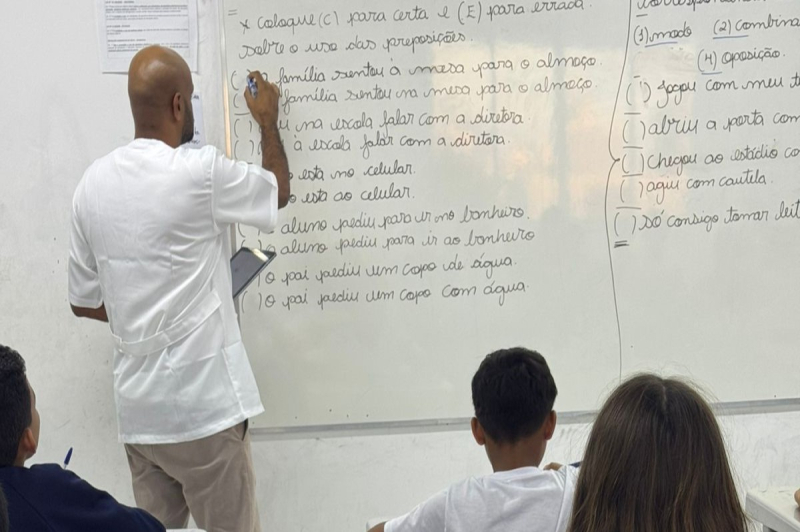 * Coloque (C) para certa e (E) para errada
sobre o uso das preposições.
( família sentou à mesa para o almoço.
( família sentou na mesa para o almoço.
( ) na escola falar com a diretora.
( à escola falar com a diretora.
está no celular.
está ao celular.
aluno pediu para ir no banheiro.
) o aluno pediu para ir ao banheiro
) O pai pediu um copo de água.
( ) O pai pediu um copo com água.
(1) modo (2) combina
(4) oposição.
( ) Jogou com meu t
( ) abriu a porta com
( ) Chegou ao estádio co
( ) agiu com cautela.
( ) Só consigo tomar leit